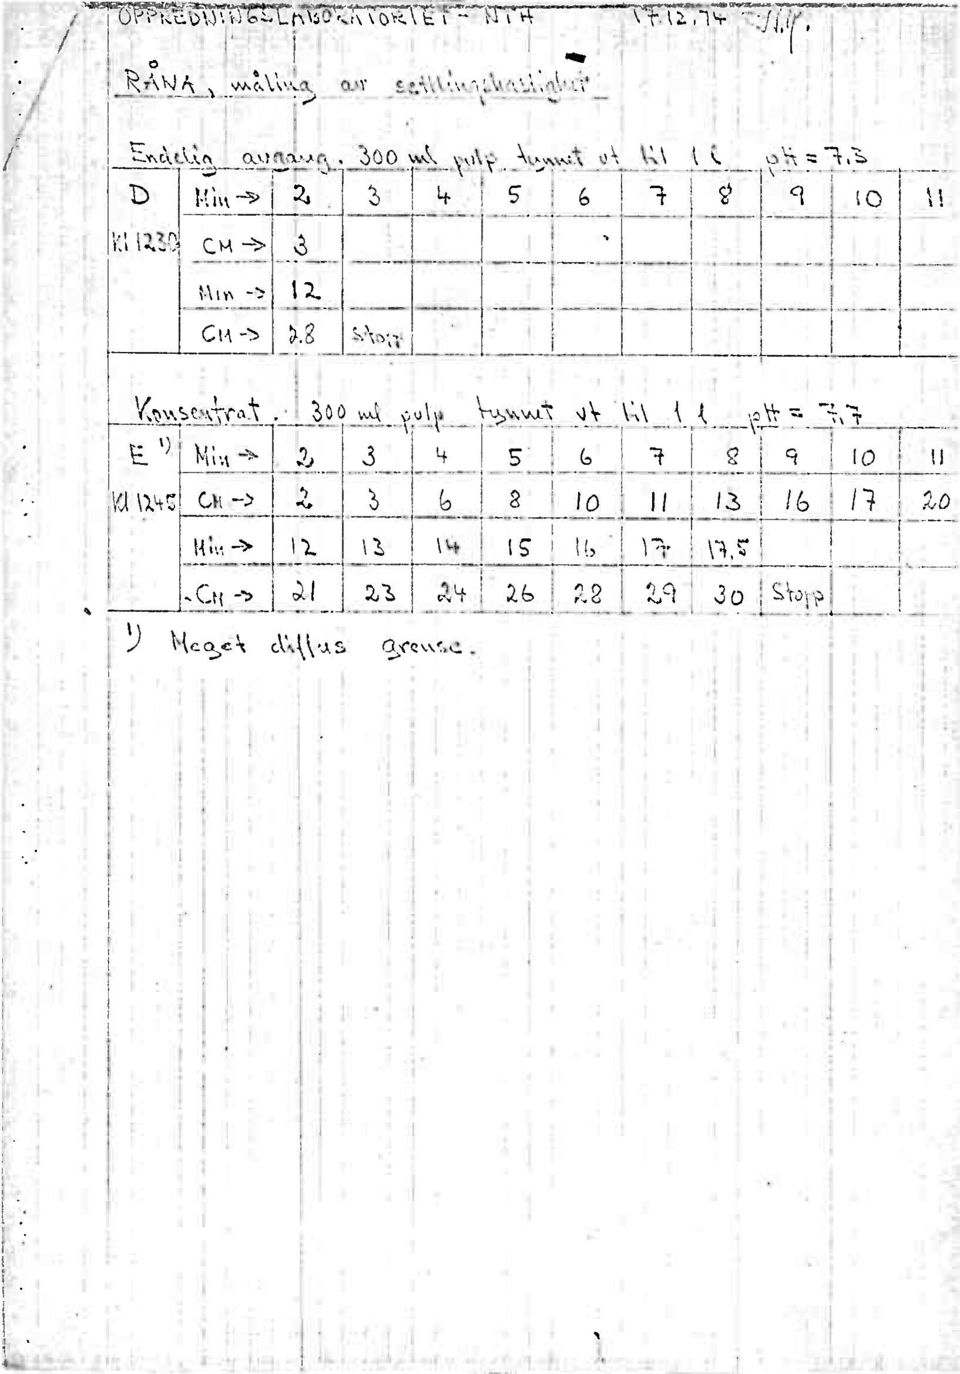 OPPREDNINGSLABORATORIET - NTH 17.12.74
RÅNA, måling av settlingshastighet
Endelig avgang. 300 ml pulp tynnet ut til 1 l pH = 7,3
D Min → 2 3 4 5 6 7 8 9 10 11
Kl 1230 CM → 3
Min → 12
CM → 28 Stopp
Konsentrat. 300 ml pulp tynnet ut til 1 l pH = 7,7
E 1) Min → 2 3 4 5 6 7 8 9 10 11
Kl 1245 CM → 2 3 6 8 10 11 13 16 17 20
Min → 12 13 14 15 16 17 17,5
CM → 21 23 24 26 28 29 30 Stopp
1) Meget diffus grense.